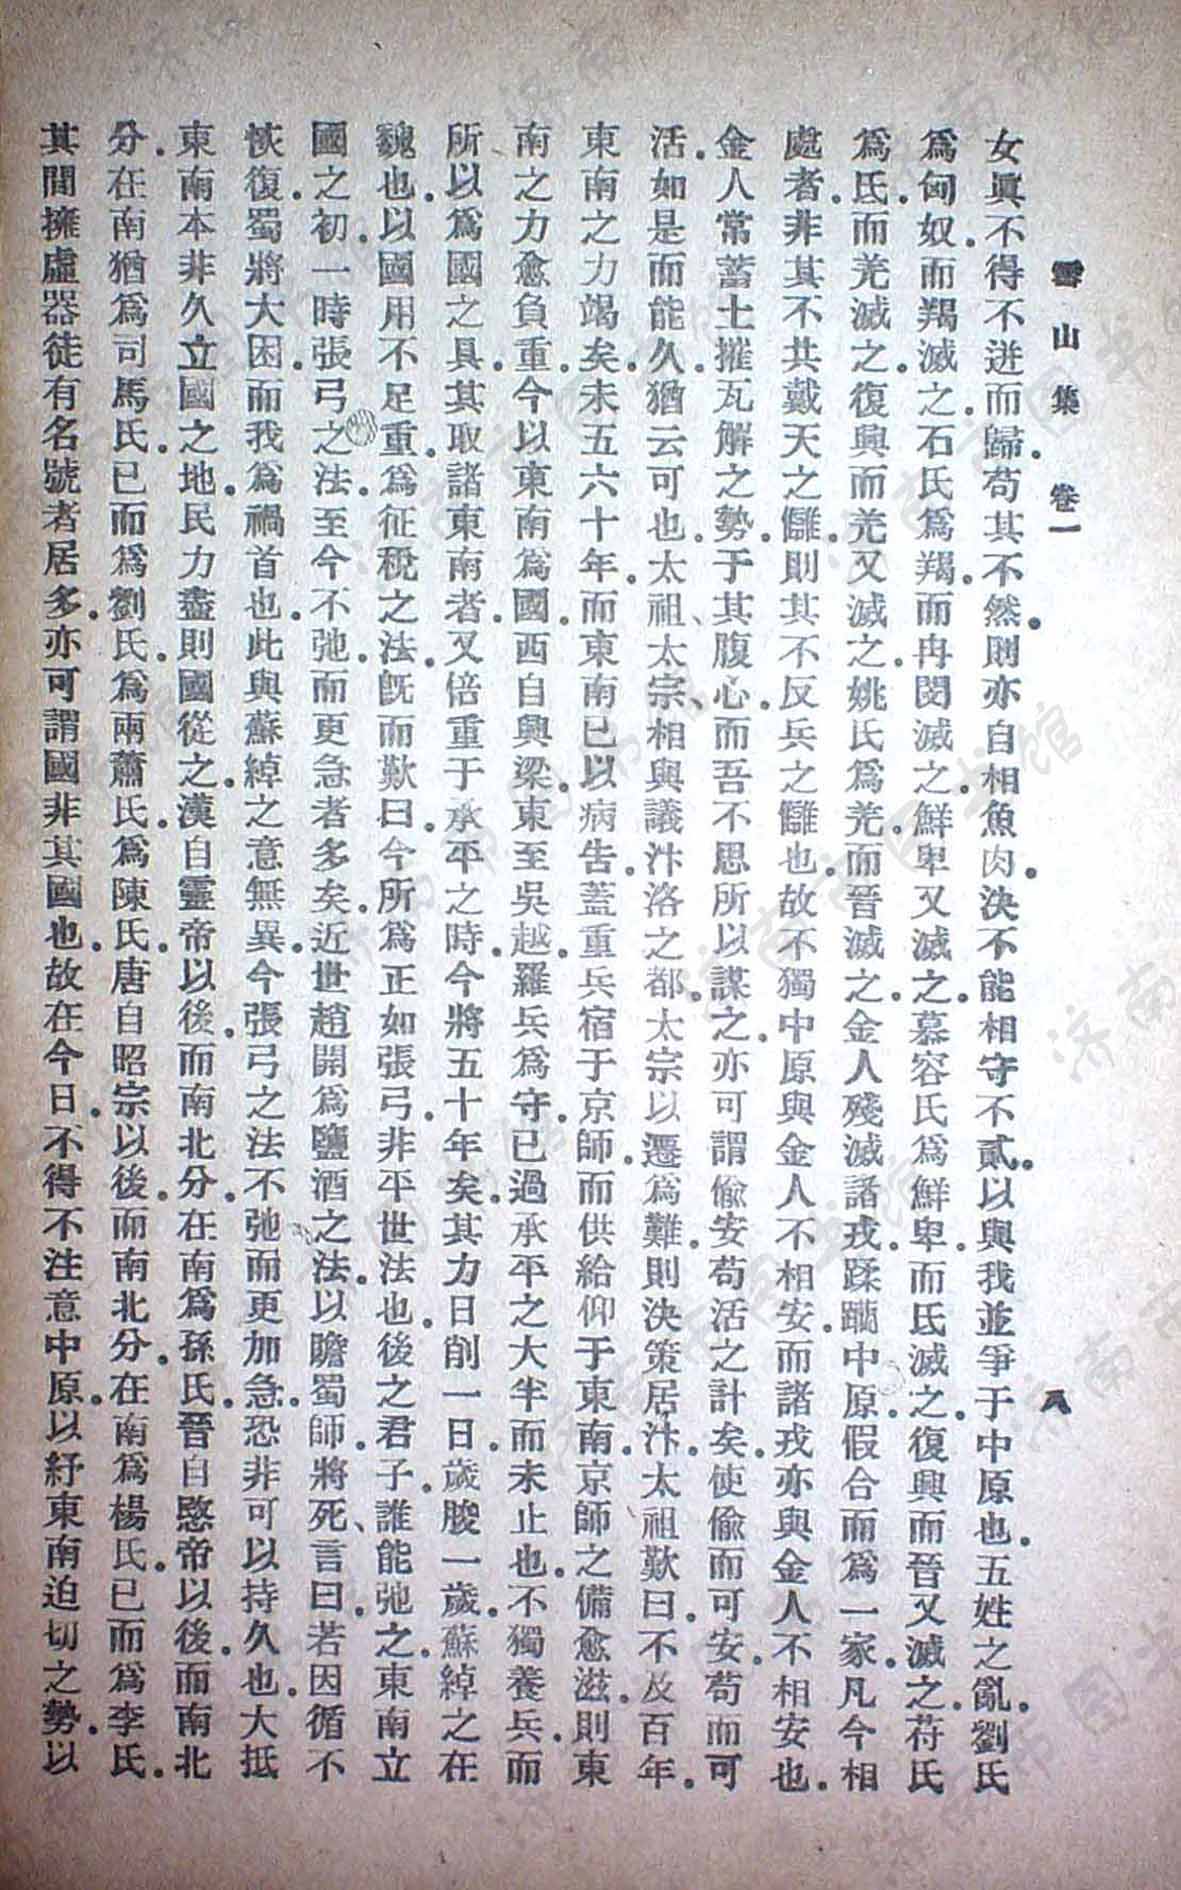 雪山集 卷一 八
女眞不得不迸而歸。苟其不然。則亦自相魚肉。決不能相守不貳。以與我並爭于中原也。五姓之亂。劉氏
爲匈奴。而羯滅之。石氏爲羯。而冉閔滅之。鮮卑又滅之。慕容氏爲鮮卑。而氐滅之。復興而晉又滅之。苻氏
爲氐。而羌滅之。復興而羌又滅之。姚氏爲羌。而晉滅之。金人殘滅諸戎。蹂躪中原。假合而爲一家。凡今相
處者。非其不共戴天之讎。則其不反兵之讎也。故不獨中原與金人不相安。而諸戎亦與金人不相安也。
金人常蓄土摧瓦解之勢。于其腹心。而吾不思所以謀之。亦可謂偸安苟活之計矣。使偸而可安。苟而可
活。如是而能久。猶云可也。太祖、太宗、相與議汴洛之都。太宗以遷爲難。則決策居汴。太祖歎曰。不及百年。
東南之力竭矣。未五六十年。而東南已以病吿。蓋重兵宿于京師。而供給仰于東南。京師之備愈滋。則東
南之力愈負重。今以東南爲國。西自興梁。東至吳越。羅兵爲守。已過承平之大半而未止也。不獨養兵。而
所以爲國之具。其取諸東南者。又倍重于承平之時。今將五十年矣。其力日削一日。歲朘一歲。蘇綽之在
魏也。以國用不足。重爲征稅之法。旣而歎曰。今所爲正如張弓。非平世法也。後之君子。誰能弛之。東南立
國之初。一時張弓之法。至今不弛。而更急者多矣。近世趙開爲鹽酒之法。以贍蜀師。將死、言曰。若因循不
恢復。蜀將大困。而我爲禍首也。此與蘇綽之意無異。今張弓之法不弛而更加急。恐非可以持久也。大抵
東南本非久立國之地。民力盡則國從之。漢自靈帝以後。而南北分。在南爲孫氏。晉自愍帝以後。而南北
分。在南猶爲司馬氏。已而爲劉氏。爲兩蕭氏。爲陳氏。唐自昭宗以後。而南北分。在南爲楊氏。已而爲李氏。
其間擁虛器徒有名號者居多。亦可謂國非其國也。故在今日。不得不注意中原。以紓東南迫切之勢。以